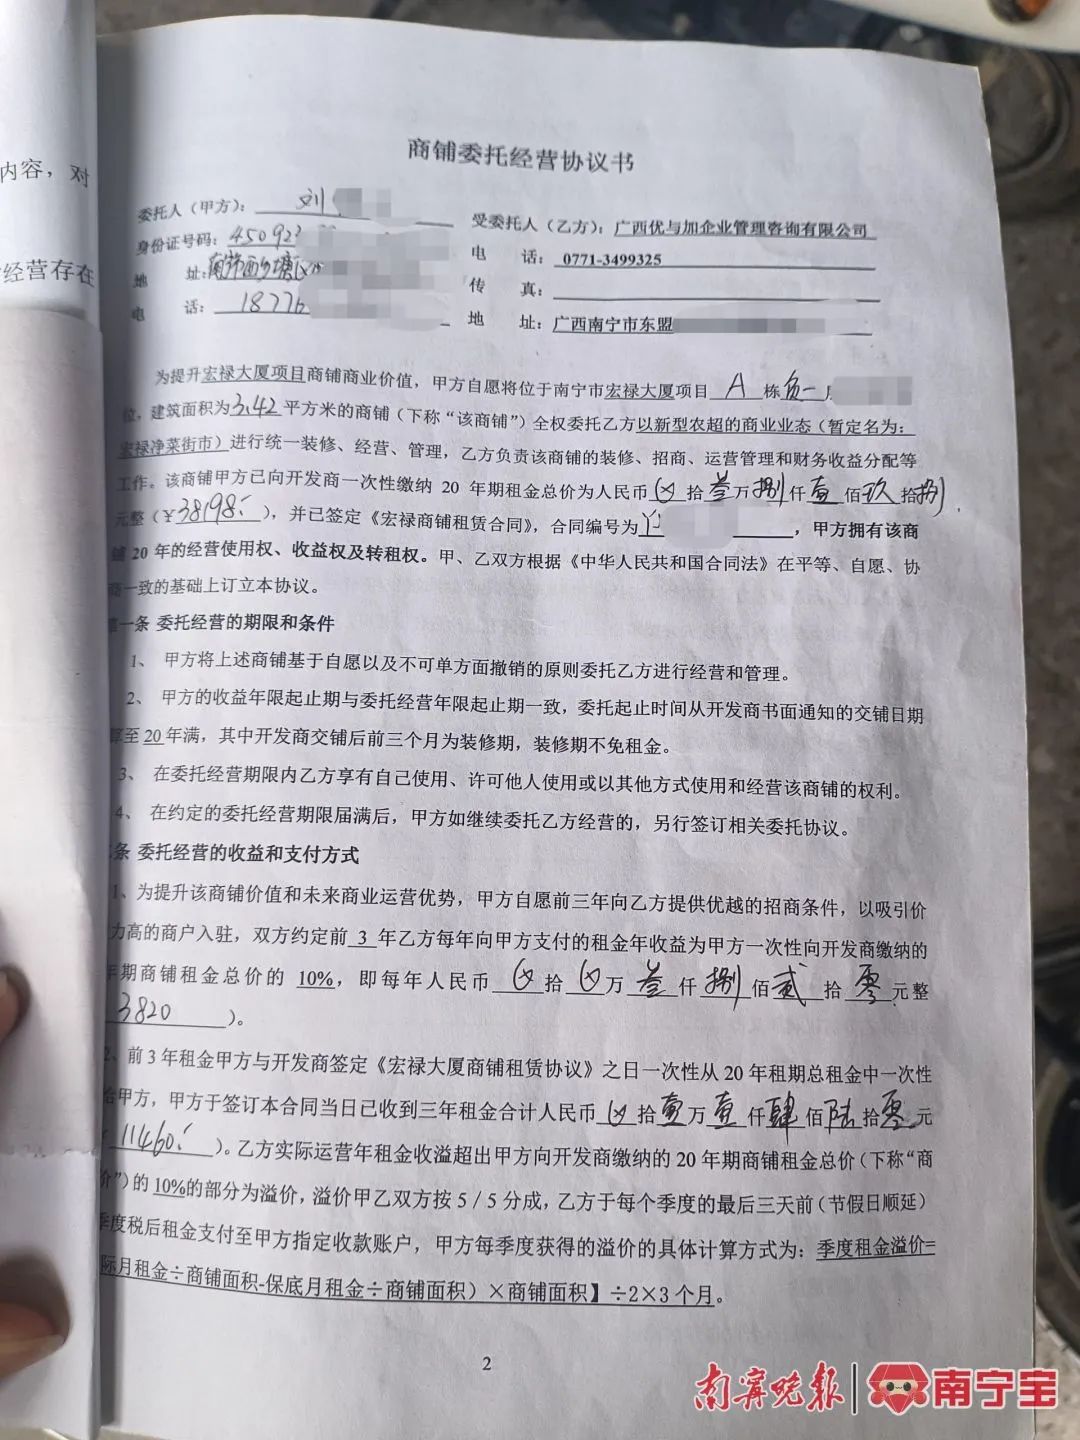 内容，对
经营存在
商铺委托经营协议书
委托人（甲方）：刘
受委托人（乙方）：广西优与加企业管理咨询有限公司
身份证号码：450923
电 话：0771-3499325
地 址：南宁市西乡塘区
传 真：
电 话：18776
地 址：广西南宁市东盟
为提升宏禄大厦项目商铺商业价值，甲方自愿将位于南宁市宏禄大厦项目 A 栋负一
位，建筑面积为3.42平方米的商铺（下称“该商铺”）全权委托乙方以新型农超的商业业态（暂定名为：
宏禄净菜街市）进行统一装修、经营、管理，乙方负责该商铺的装修、招商、运营管理和财务收益分配等
工作。该商铺甲方已向开发商一次性缴纳 20 年期租金总价为人民币 ⊗ 拾叁万捌仟壹佰玖拾捌
元整（¥38198.），并已签定《宏禄商铺租赁合同》，合同编号为 ，甲方拥有该商
铺 20 年的经营使用权、收益权及转租权。甲、乙双方根据《中华人民共和国合同法》在平等、自愿、协
商一致的基础上订立本协议。
第一条 委托经营的期限和条件
1、 甲方将上述商铺基于自愿以及不可单方面撤销的原则委托乙方进行经营和管理。
2、 甲方的收益年限起止期与委托经营年限起止期一致，委托起止时间从开发商书面通知的交铺日期
至20年满，其中开发商交铺后前三个月为装修期，装修期不免租金。
3、 在委托经营期限内乙方享有自己使用、许可他人使用或以其他方式使用和经营该商铺的权利。
4、 在约定的委托经营期限届满后，甲方如继续委托乙方经营的，另行签订相关委托协议。
条 委托经营的收益和支付方式
1、为提升该商铺价值和未来商业运营优势，甲方自愿前三年向乙方提供优越的招商条件，以吸引价
力高的商户入驻，双方约定前 3 年乙方每年向甲方支付的租金年收益为甲方一次性向开发商缴纳的
年期商铺租金总价的 10%，即每年人民币 ⊗ 拾 ⊗ 万叁仟捌佰贰拾零元整
3820 ）。
2、前3年租金甲方与开发商签定《宏禄大厦商铺租赁协议》之日一次性从20年租期总租金中一次性
给甲方，甲方于签订本合同当日已收到三年租金合计人民币 ⊗ 拾壹万壹仟肆佰陆拾零元
11460. ）。乙方实际运营年租金收溢超出甲方向开发商缴纳的20年期商铺租金总价（下称“商
价”）的10%的部分为溢价，溢价甲乙双方按5/5分成，乙方于每个季度的最后三天前（节假日顺延）
季度税后租金支付至甲方指定收款账户，甲方每季度获得的溢价的具体计算方式为：季度租金溢价=
际月租金÷商铺面积-保底月租金÷商铺面积）×商铺面积】÷2×3个月。
2
南宁晚报 南宁宝